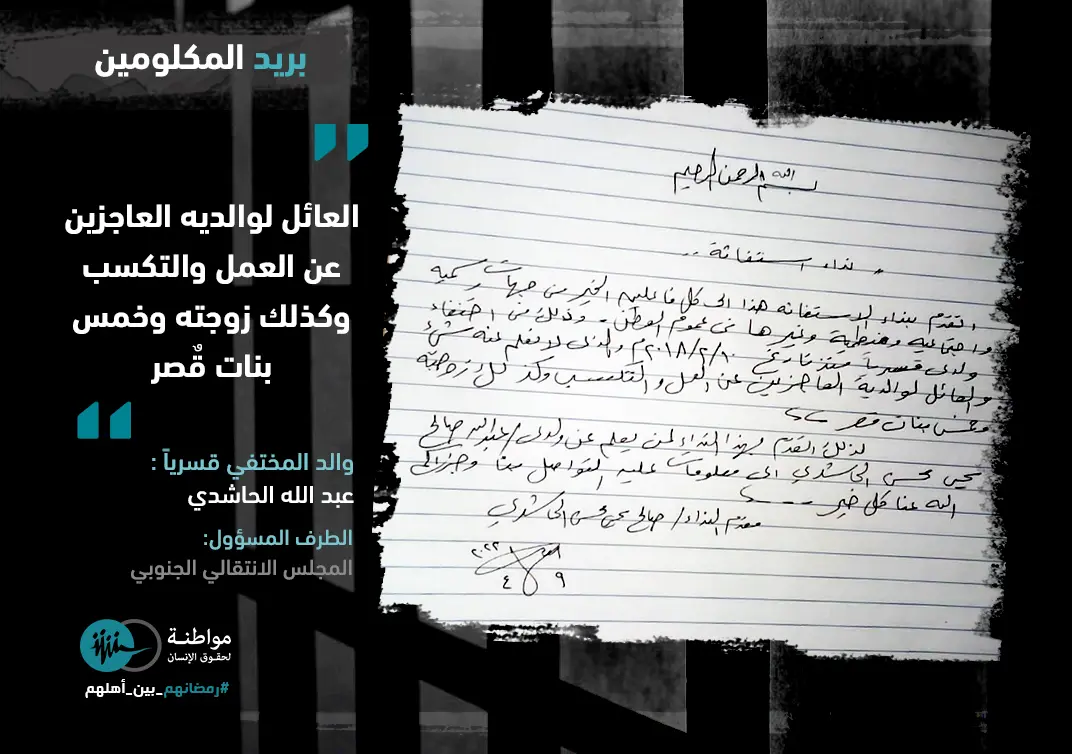 بريد المكلومين
العائل لوالديه العاجزين
عن العمل والتكسب
وكذلك زوجته وخمس
بنات قُصر
والد المختفي قسرياً :
عبد الله الحاشدي
الطرف المسؤول:
المجلس الانتقالي الجنوبي
مواطنة
لحقوق الإنسان
#رمضانهم_بين_أهلهم
بسم الله الرحمن الرحيم
نداء استغاثة ..
اتقدم بنداء الاستغاثه هذا الى كل فاعلين الخير من جهات رسميه
واجتماعيه ومنظمية وغيرها في عموم الوطن . وذلك من اختفاء
ولدي قسرياً منذ تاريخ ٢٠١٨/٢/١٠م والذي لا نعلم عنه شئ
والعائل لوالدية العاجزين عن العمل والتكسب وكذلك زوجته
وخمس بنات قصر
لذلك اتقدم بهذا النداء لمن يعلم عن ولدي / عبدالله صالح
يحيى محسن الحاشدي اي معلومات عليه التواصل معنا وجزاكم
الله عنا كل خير
مقدم النداء / صالح يحي محسن الحاشدي
٢٠٢٢
٩ ٤